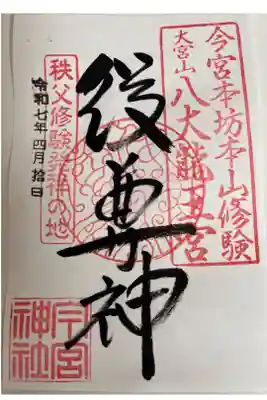 今宮本坊本山修験
大宮山八大龍王宮
役尊神
秩父修験発祥の地
令和七年四月拾日
今宮神社